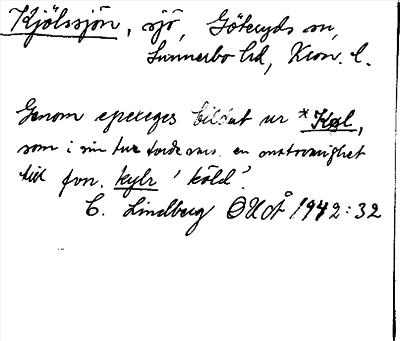 Kjölssjön, sjö, Göteryds sn,
Sunnerbo hd, Kron. l.
Genom epexeges bildat ur *Køl,
som i sin tur torde vara en motsvarighet
till fvn. kylr 'köld'.
C. Lindberg OUÅ 1942:32